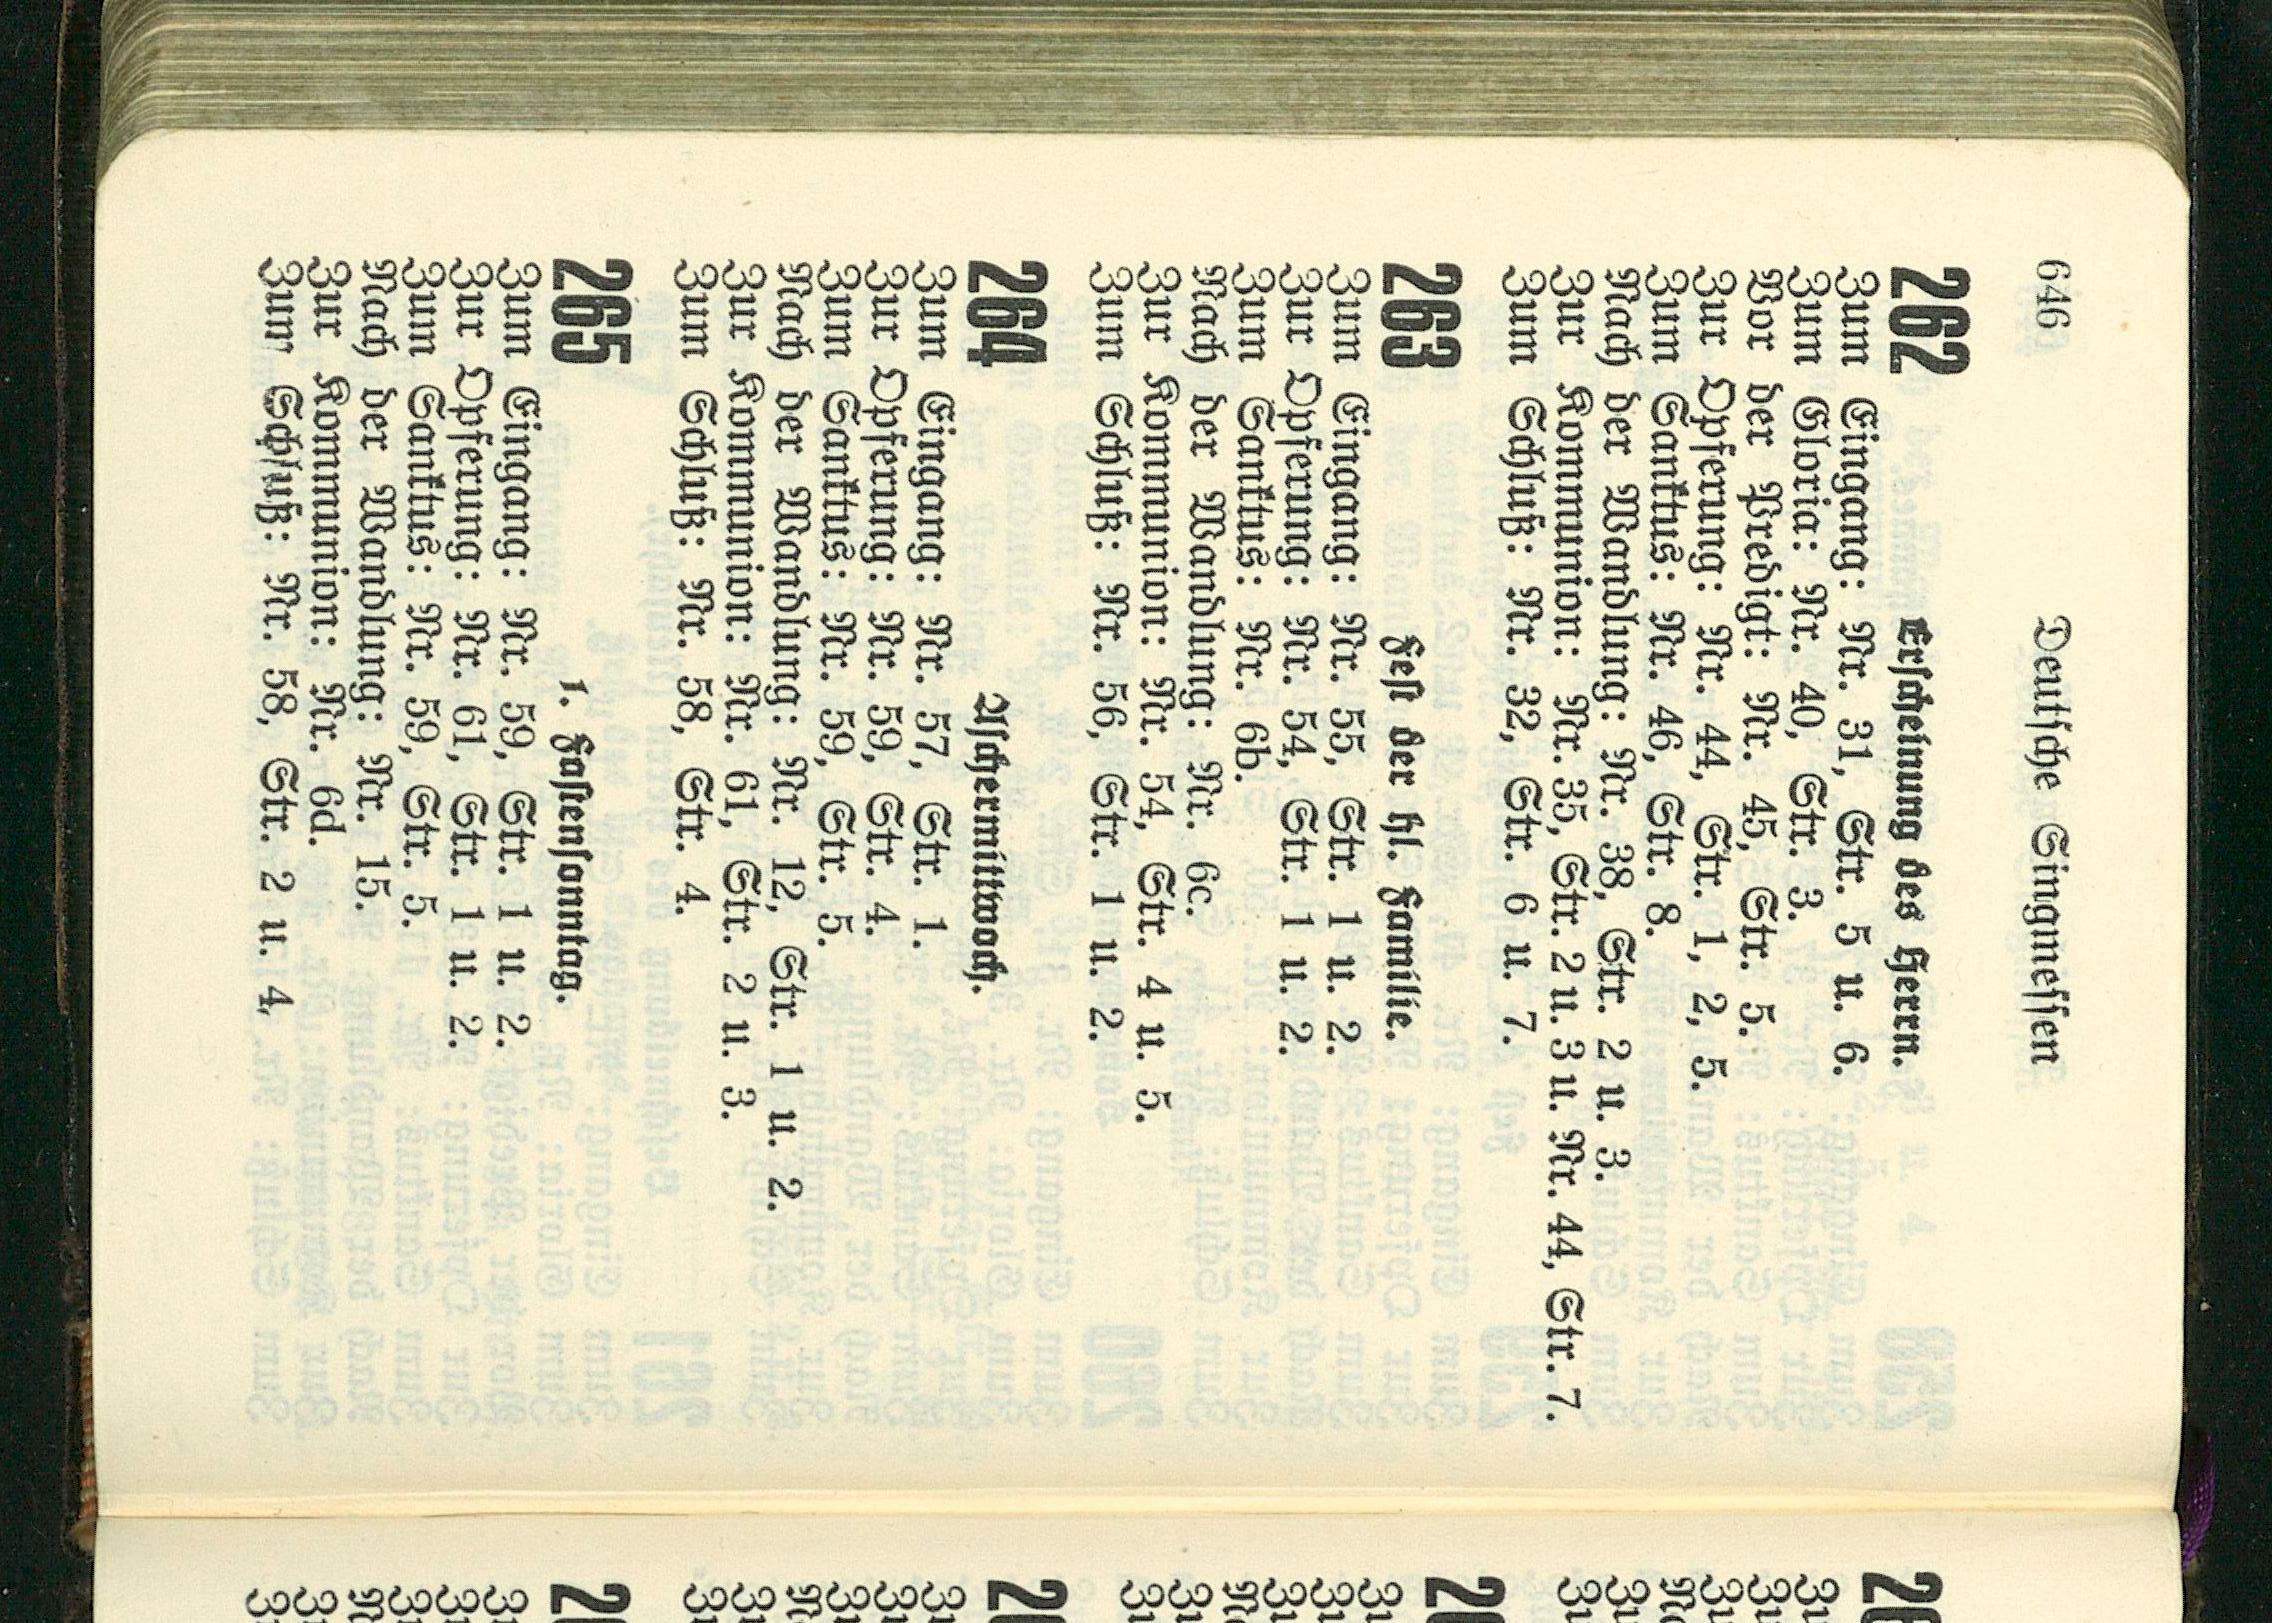 646 Deutsche Singmessen
262 Erscheinung des Herrn.
Zum Eingang: Nr. 31, Str. 5 u. 6.
Zum Gloria: Nr. 40, Str. 3.
Vor der Predigt: Nr. 45, Str. 5.
Zur Opferung: Nr. 44, Str. 1, 2, 5.
Zum Sanktus: Nr. 46, Str. 8.
Nach der Wandlung: Nr. 38, Str. 2 u. 3.
Zur Kommunion: Nr. 35, Str. 2 u. 3 u. Nr. 44, Str. 7.
Zum Schluß: Nr. 32, Str. 6 u. 7.
263 Fest der hl. Familie.
Zum Eingang: Nr. 55, Str. 1 u. 2.
Zur Opferung: Nr. 54, Str. 1 u. 2.
Zum Sanktus: Nr. 6b.
Nach der Wandlung: Nr. 6c.
Zur Kommunion: Nr. 54, Str. 4 u. 5.
Zum Schluß: Nr. 56, Str. 1 u. 2.
264 Aschermittwoch.
Zum Eingang: Nr. 57, Str. 1.
Zur Opferung: Nr. 59, Str. 4.
Zum Sanktus: Nr. 59, Str. 5.
Nach der Wandlung: Nr. 12, Str. 1 u. 2.
Zur Kommunion: Nr. 61, Str. 2 u. 3.
Zum Schluß: Nr. 58, Str. 4.
265 1. Fastensonntag.
Zum Eingang: Nr. 59, Str. 1 u. 2.
Zur Opferung: Nr. 61, Str. 1 u. 2.
Zum Sanktus: Nr. 59, Str. 5.
Nach der Wandlung: Nr. 15.
Zur Kommunion: Nr. 6d.
Zum Schluß: Nr. 58, Str. 2 u. 4.